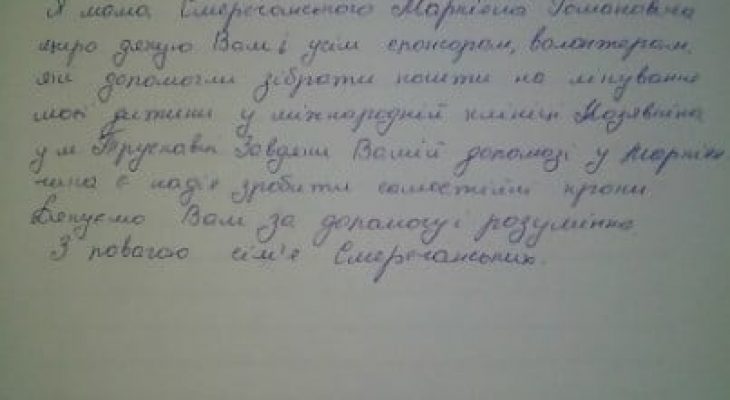 Я мама Смереганського Маркіяна Романовича
щиро дякую Вам і усім спонсорам, волонтерам,
які допомогли зібрати кошти на лікування
моєї дитини у міжнародній клініці Козявкіна
у м Трускавці Завдяки Вашій допомозі у Маркія
чина є надія зробити самостійні кроки
Дякуємо Вам за допомогу і розуміння
З повагою сім'я Смереганських.